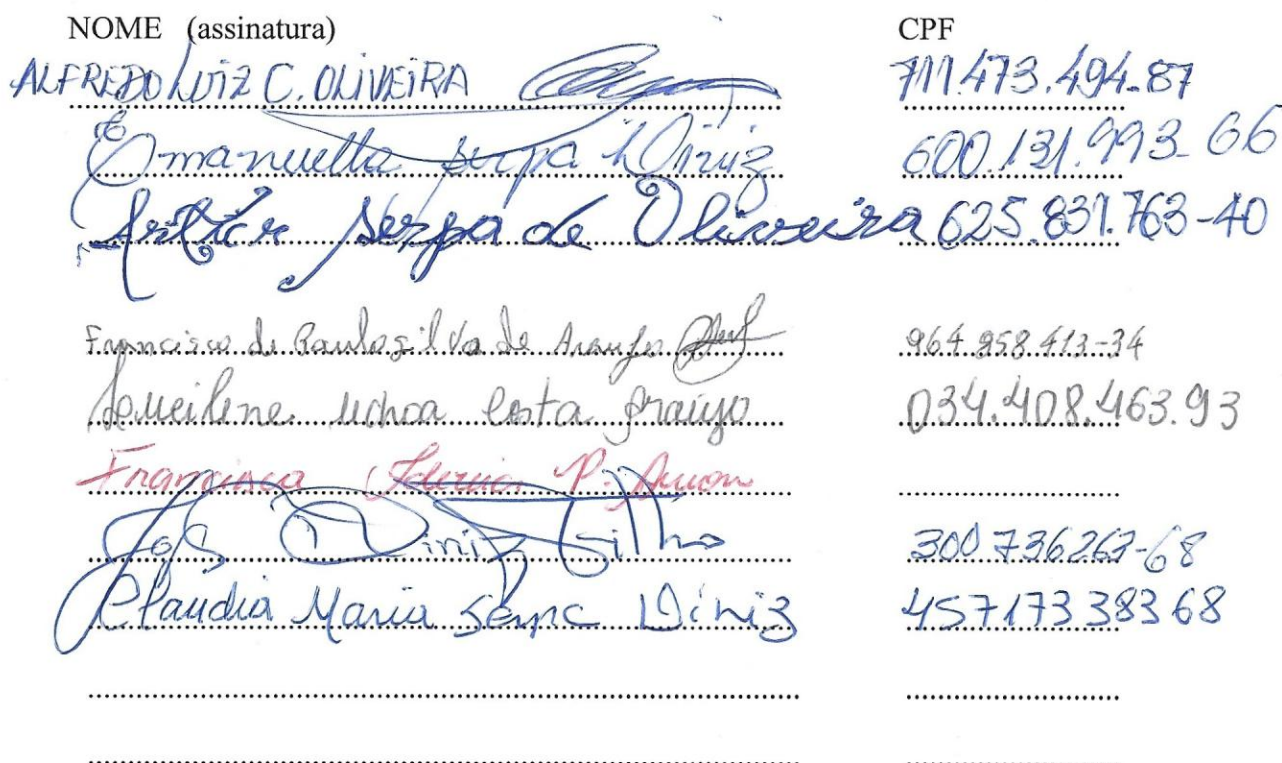 NOME (assinatura) CPF
ALFREDO LUIZ C. OLIVEIRA 711.473.494-87
Emanuella Serpa Diniz 600.131.993-66
Artur Serpa de Oliveira 625.831.763-40
Francisco de Paulo Silva de Araujo 964.958.413-34
uchoa Costa Araújo 034.408.463.93
Francisca P.
José Diniz Filho 300736263-68
Claudia Maria Serpa Diniz 45717338368